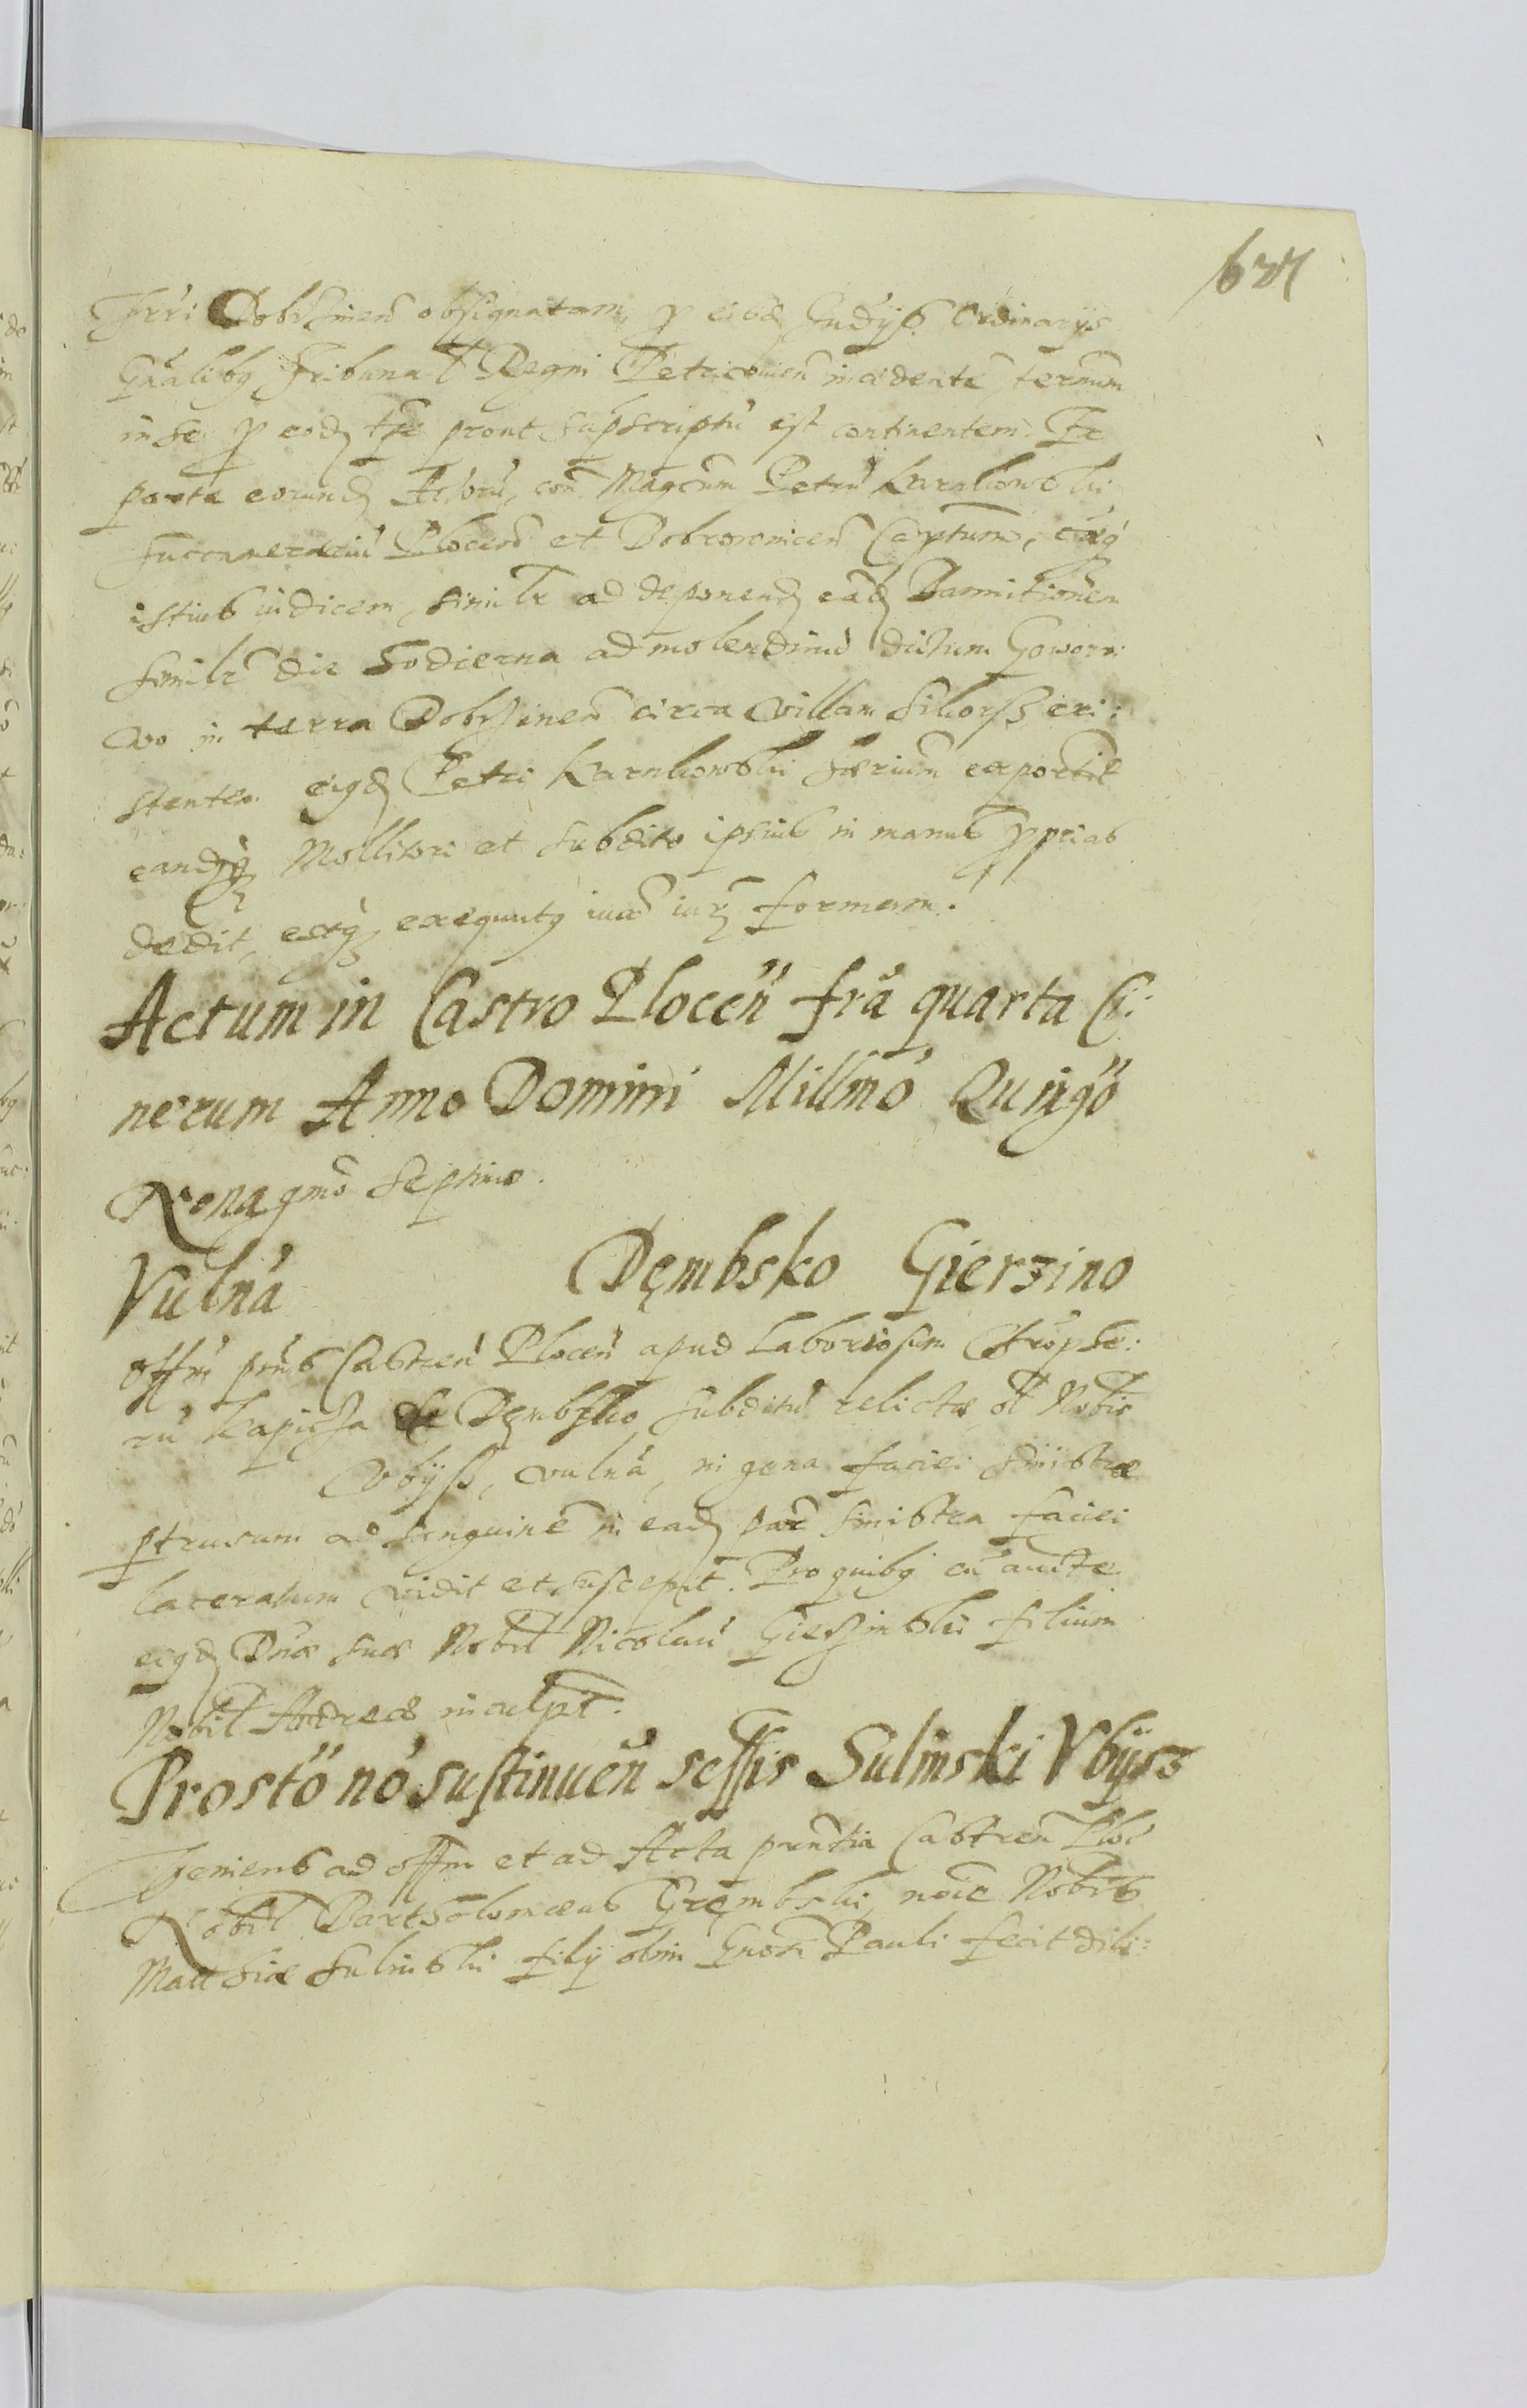 627
Terrī Dobrzinen̄ obsignatam, p eisdē Judijs Ordinarijs
Gn̄alibꝰ Tribunal Regni Petricovien̄ incedente termum
in se p eod tp̄e prout supscriptū est continentem. Ex
parte eorund Actorū, con̄ Magcum Petrū Karnkowski
succamerariū Plocen̄ et Dobrzinicen̄ Captum,
istius iudicem, similr ad deponend eād Bannitionem
similr die hodierna ad molendinū dictum Gowori:
wo in terra Dobrzinen̄ circa villam Sikorz exi:
stentem eiqd Petri Karnkowski hærium exportāt
eandq Mollitori et subdito ipsius in manus pprias
dedit, exequutꝰ iuā iur formam.
Actum in Castro Plocen̄ fr̄a quarta Ci:
nerum Anno Domini Millmo Quingo
Nonagmo septimo.
Vulnā Dęmbsko Gierzino
Offm pn̄s Castren̄ Plocen̄ apud Laboriosum Chr̄opho:
rū Kapicza de Dęmbsko subditū relictæ ol Nobis
Vbysz, vulnā, in gena faciei sinistræ
ptrusum ad sanguinē in ead par̄e sinistra faciei
laceratum vidit et suscepit. Pro quibꝰ eū aucte
eiqd Dn̄æ suæ Nobil Nicolaū Gierzinski filium
Nobil Andreæ inculpat.
Prostō nō sustinuen̄ sessis Sulinski Vbÿsz
Veniens ad offm et ad Acta pn̄tia Castren̄ Ploc̄
Nobil Bartholomæus Grzembski, noīe Nobis
Matthiæ Sulinski filij olim Gnosi Pauli fecit dili: